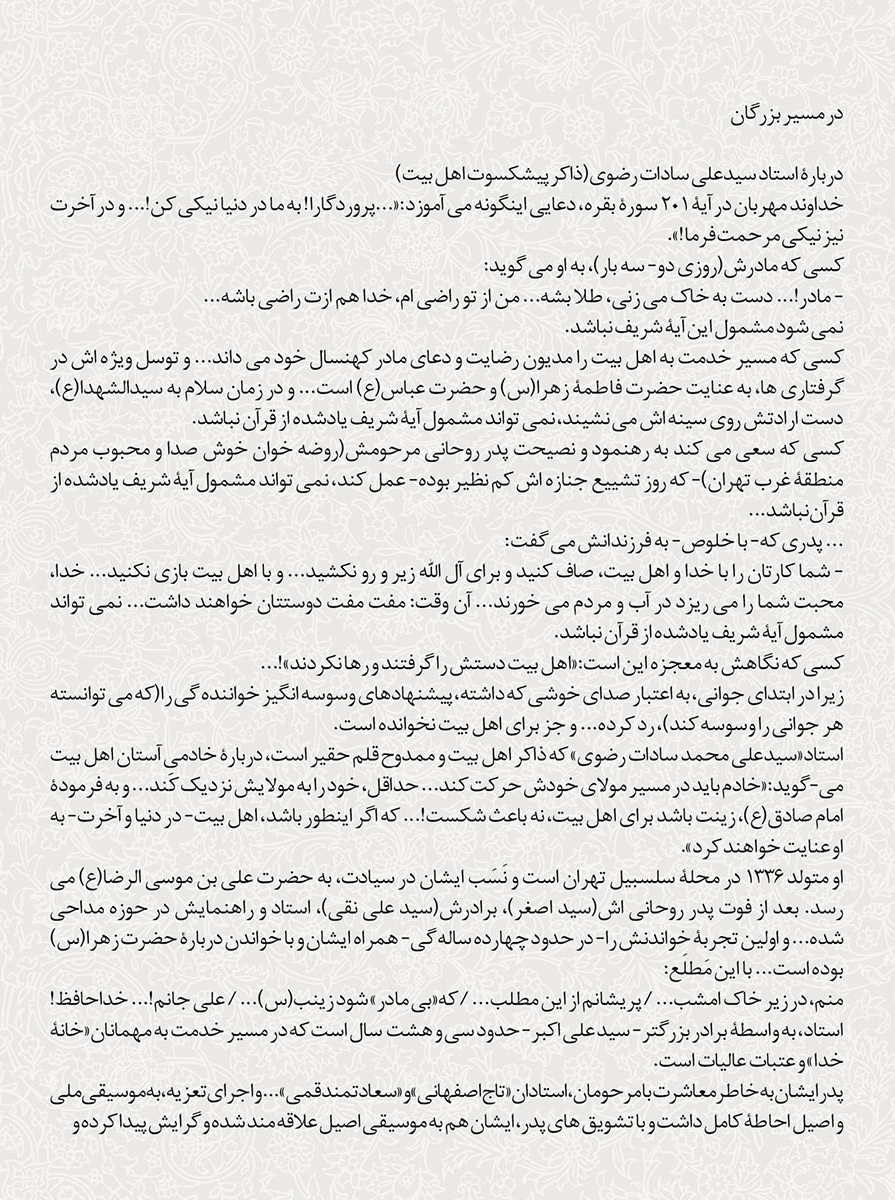 در مسیر بزرگان
دربارهٔ استاد سیدعلی سادات رضوی(ذاکر پیشکسوت اهل بیت)
خداوند مهربان در آیهٔ ۲۰۱ سورهٔ بقره، دعایی اینگونه می آموزد:«...پروردگارا! به ما در دنیا نیکی کن!... و در آخرت
نیز نیکی مرحمت فرما!».
کسی که مادرش(روزی دو- سه بار)، به او می گوید:
- مادر!... دست به خاک می زنی، طلا بشه... من از تو راضی ام، خدا هم ازت راضی باشه...
نمی شود مشمول این آیهٔ شریف نباشد.
کسی که مسیر خدمت به اهل بیت را مدیون رضایت و دعای مادر کهنسال خود می داند... و توسل ویژه اش در
گرفتاری ها، به عنایت حضرت فاطمهٔ زهرا(س) و حضرت عباس(ع) است... و در زمان سلام به سیدالشهدا(ع)،
دست ارادتش روی سینه اش می نشیند، نمی تواند مشمول آیهٔ شریف یادشده از قرآن نباشد.
کسی که سعی می کند به رهنمود و نصیحت پدر روحانی مرحومش(روضه خوان خوش صدا و محبوب مردم
منطقهٔ غرب تهران)- که روز تشییع جنازه اش کم نظیر بوده- عمل کند، نمی تواند مشمول آیهٔ شریف یادشده از
قرآن نباشد...
... پدری که- با خلوص- به فرزندانش می گفت:
- شما کارتان را با خدا و اهل بیت، صاف کنید و برای آل الله زیر و رو نکشید... و با اهل بیت بازی نکنید... خدا،
محبت شما را می ریزد در آب و مردم می خورند... آن وقت: مفت مفت دوستتان خواهند داشت... نمی تواند
مشمول آیهٔ شریف یادشده از قرآن نباشد.
کسی که نگاهش به معجزه این است:«اهل بیت دستش را گرفتند و رها نکردند»!...
زیرا در ابتدای جوانی، به اعتبار صدای خوشی که داشته، پیشنهادهای وسوسه انگیز خواننده گی را(که می توانسته
هر جوانی را وسوسه کند)، رد کرده... و جز برای اهل بیت نخوانده است.
استاد«سیدعلی محمد سادات رضوی» که ذاکر اهل بیت و ممدوح قلم حقیر است، دربارهٔ خادمی آستان اهل بیت
می-گوید:«خادم باید در مسیر مولای خودش حرکت کند... حداقل، خود را به مولایش نزدیک کَند... و به فرمودهٔ
امام صادق(ع)، زینت باشد برای اهل بیت، نه باعث شکست!... که اگر اینطور باشد، اهل بیت- در دنیا و آخرت- به
او عنایت خواهند کرد».
او متولد ۱۳۳۶ در محلهٔ سلسبیل تهران است و نَسَب ایشان در سیادت، به حضرت علی بن موسی الرضا(ع) می
رسد. بعد از فوت پدر روحانی اش(سید اصغر)، برادرش(سید علی نقی)، استاد و راهنمایش در حوزه مداحی
شده... و اولین تجربهٔ خواندنش را- در حدود چهارده ساله گی- همراه ایشان و با خواندن دربارهٔ حضرت زهرا(س)
بوده است... با این مَطلَع:
منم، در زیر خاک امشب... / پریشانم از این مطلب... / که«بی مادر» شود زینب(س)... / علی جانم!... خداحافظ!
استاد، به واسطهٔ برادر بزرگتر- سیدعلی اکبر- حدود سی و هشت سال است که در مسیر خدمت به مهمانان«خانهٔ
خدا» و عتبات عالیات است.
پدر ایشان به خاطر معاشرت با مرحومان، استادان«تاج اصفهانی» و«سعادتمند قمی»... و اجرای تعزیه، به موسیقی ملی
و اصیل احاطهٔ کامل داشت و با تشویق های پدر، ایشان هم به موسیقی اصیل علاقه مند شده و گرایش پیدا کرده و